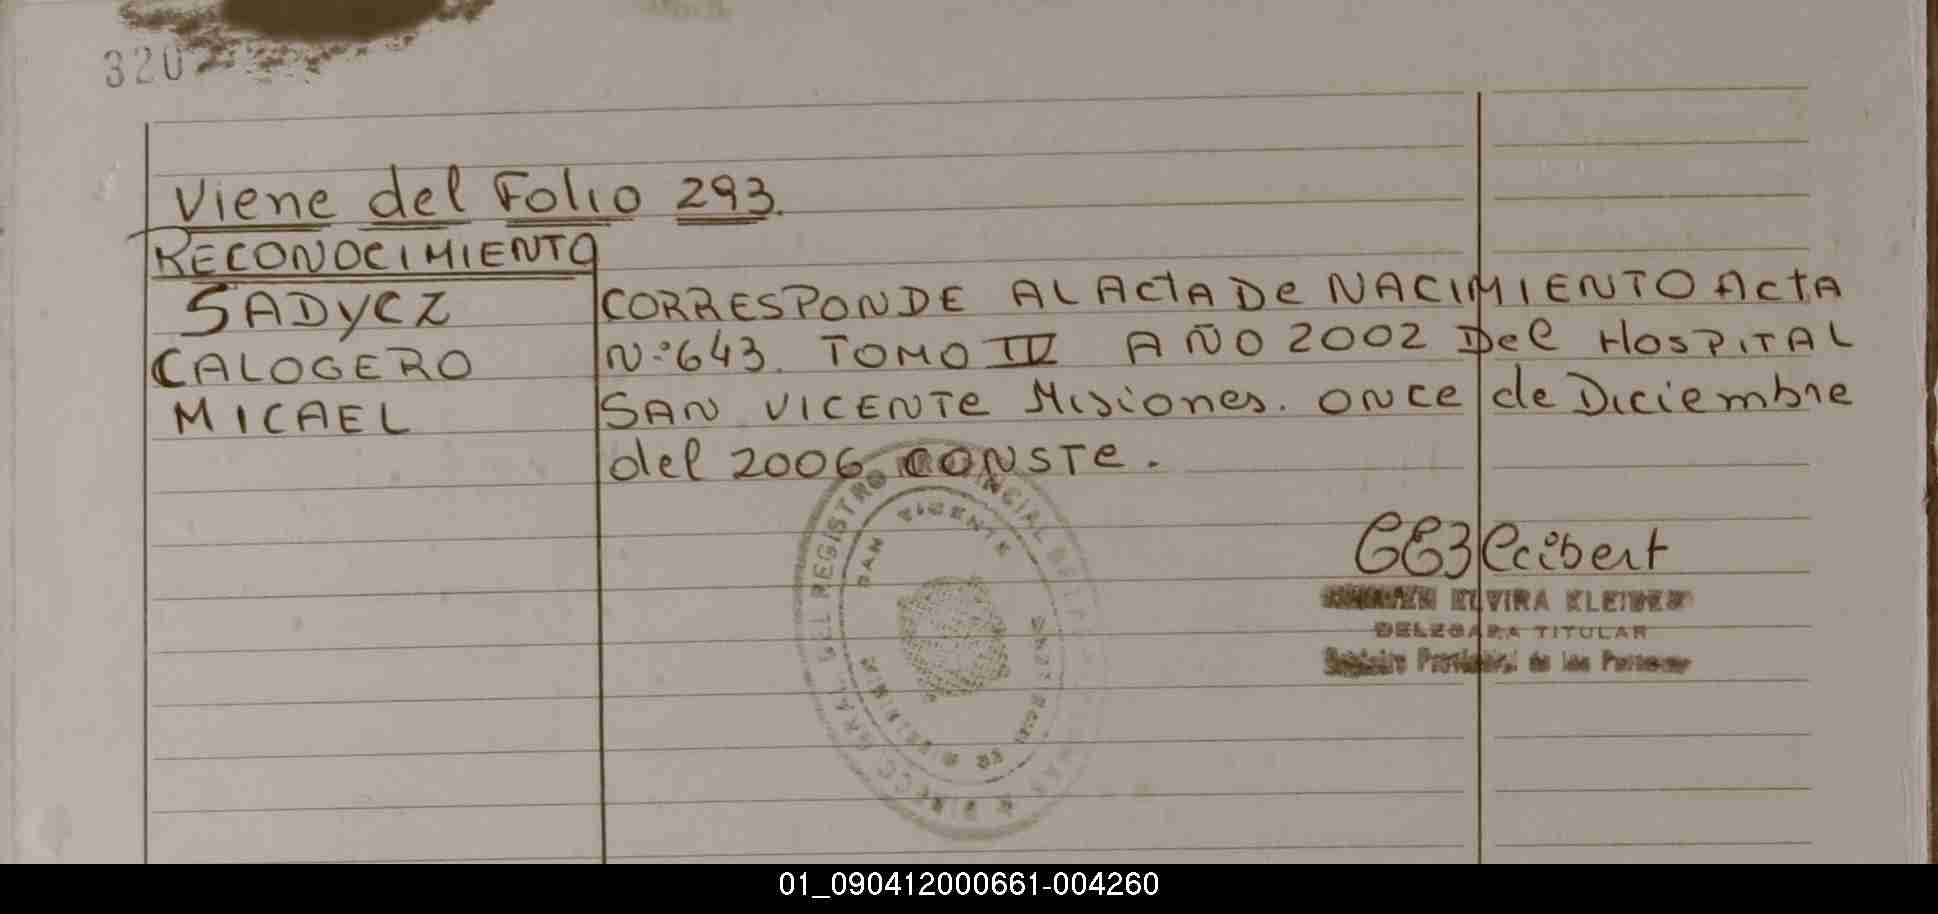 320
Viene del Folio 293.
RECONOCIMIENTO
SADYCZ
CALOGERO
MICAEL
CORRESPONDE AL ACTA De NACIMIENTO ActA
N.º 643. TOMO IV AÑO 2002 Del HOSPITAL
SAN VICENTe Misiones. ONCe de Diciembre
del 2006. CONSTe.
REGISTRO
SAN VICENTE
ELVIRA KLEIBER
DELEGADA TITULAR
Registro Provincial de las Personas
01_090412000661-004260